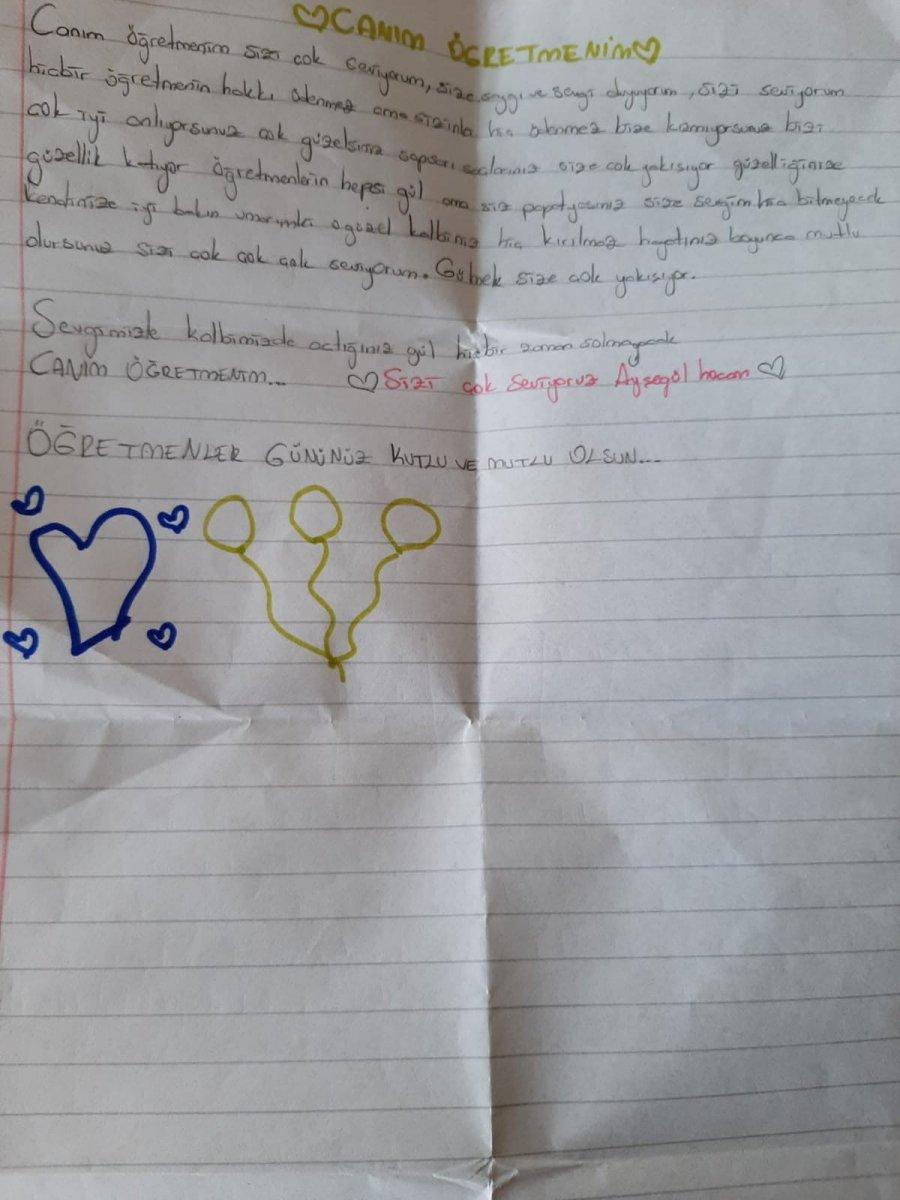 ♡CANIM ÖĞRETMENİM♡
Canım öğretmenim sizi cok seviyorum, size saygı ve sevgi duyuyorum, sizi seviyorum
hicbir öğretmenin hakkı ödenmez ama sizinki hic ödenmez bize kızmıyorsunuz bizi
cok iyi anlıyorsunuz cok güzelsiniz sapsarı saclarınız size cok yakışıyor güzelliğinize
güzellik katıyor öğretmenlerin hepsi gül ama siz papatyasınız size sevgim hic bitmeyecek
kendinize iyi bakın umarımki o güzel kalbiniz hic kırılmaz hayatınız boyunca mutlu
olursunuz sizi cok cok cok seviyorum. Gülmek size cok yakışıyor.
Sevginizle kalbimizde actığınız gül hicbir zaman solmayacak
CANIM ÖĞRETMENİM... ♡Sizi çok seviyoruz Ayşegül hocam♡
ÖĞRETMENLER GÜNÜNÜZ KUTLU VE MUTLU OLSUN...